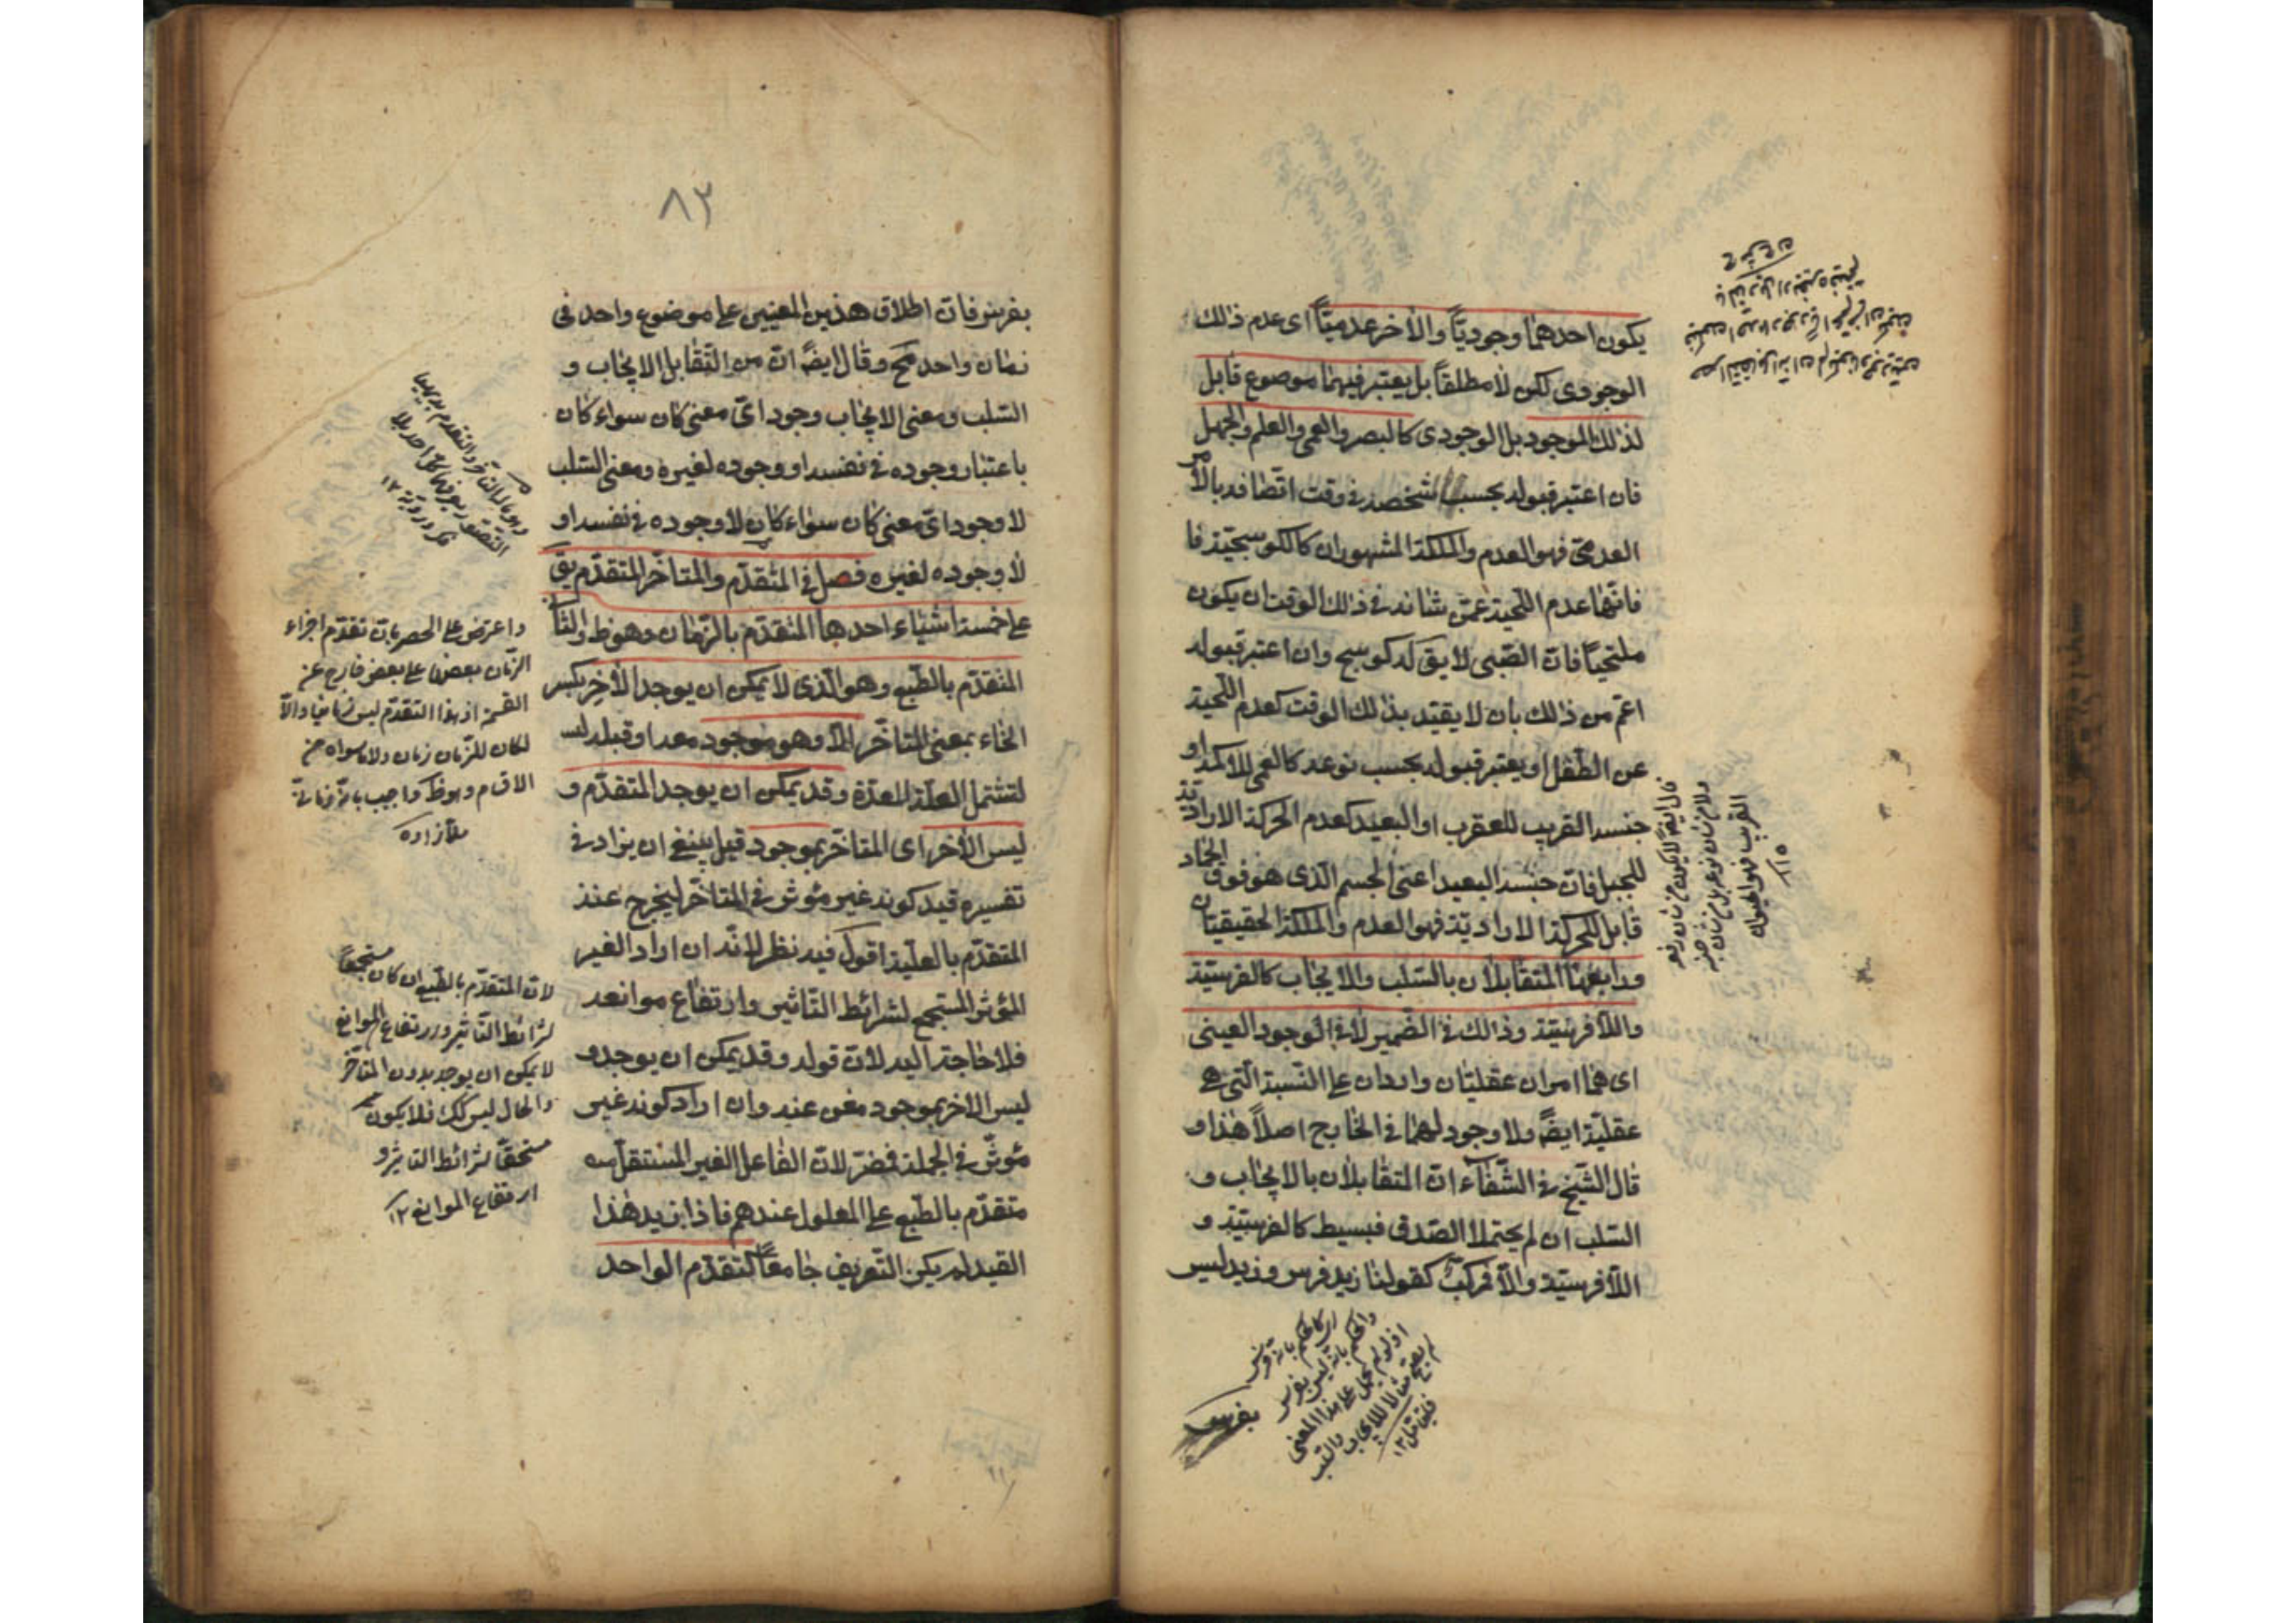 يكون احدهما وجوديّاً والاخر عدميّاً اى عدم ذلك
الوجودى لكن لا مطلقاً بل يعتبر فيهما موضوع قابل
لذلك الموجود بل الوجودى كالبصر والعمى والعلم والجهل
فان اعتبر قبوله بحسب شخصه فى وقت اتصافه بالامر
العدمىّ فهو العدم والملكة المشهوران كالكوسجيّة فا
فانّها عدم اللّحية عمّن شانه فى ذلك الوقت ان يكون
ملتحياً فانّ الصّبى لا يق له كوسج وان اعتبر قبوله
اعمّ من ذلك بان لا يقيّد بذلك الوقت كعدم اللّحية
عن الطّفل او يعتبر قبوله بحسب نوعه كالعمى للاكمه او
جنسه القريب للعقرب او البعيد كعدم الحركة الاراديّة
للجبل فانّ جنسه البعيد اعنى الجسم الّذى هو فوق الجماد
قابل للحركة الاراديّة فهو العدم والملكة الحقيقيّتان
ورابعها المتقابلان بالسّلب والايجاب كالفرسيّة
واللّافرسيّة وذلك فى الضّمير لا فى الوجود العينى
اى هما امران عقليّان واردان على النّسبة الّتى هى
عقليّة ايضاً ولا وجود لهما فى الخارج اصلاً هذا و
قال الشّيخ فى الشّفاء انّ المتقابلان بالايجاب و
السّلب ان لم يحتملا الصّدق فبسيط كالفرسيّة و
اللّافرسيّة والّا فمركّب كقولنا زيد فرس وزيد ليس
بفرس
قال ايضاً لا يكون من شان
ولا من شان نوعه بل من شان جنسه
القريب فهو الحيوان
اى كالحكم بانّه فرس
والحكم بانّه ليس بفرس
اذ لو لم يحمل على هذا المعنى
لم يصحّ مثالا للايجاب والسّلب
فليتامل ١٢
٨٣
بفرس فانّ اطلاق هذين المعنيين على موضوع واحد فى
زمان واحد مح وقال ايضاً انّ من التّقابل الايجاب و
السّلب ومعنى الايجاب وجود اىّ معنى كان سواء كان
باعتبار وجوده فى نفسه او وجوده لغيره ومعنى السّلب
لا وجود اىّ معنى كان سواء كان لا وجوده فى نفسه او
لا وجوده لغيره فصل فى المتقدّم والمتاخّر المتقدّم يق
على خمسة اشياء احدها المتقدّم بالزّمان وهو ظ والثا
المتقدّم بالطّبع وهو الّذى لا يمكن ان يوجد الاخر بكسر
الخاء بمعنى المتاخّر الّا وهو موجود معه او قبله ليـ
لتشتمل العلّة المعدّة وقد يمكن ان يوجد المتقدّم و
ليس الاخر اى المتاخّر بموجود قيل ينبغى ان يزاد فى
تفسيره قيد كونه غير مؤثر فى المتاخّر ليخرج عنه
المتقدّم بالعلّية اقول فيه نظر لانّه ان اراد الغير
المؤثر المستجمع لشرائط التّاثير وارتفاع موانعه
فلا حاجة اليه لانّ قوله وقد يمكن ان يوجد و
ليس الاخر بموجود مغن عنه وان اراد كونه غير
مؤثّر فى الجملة فمضرّ لانّ الفاعل الغير المستقل
متقدّم بالطّبع على المعلول عندهم فاذا زيد هذا
القيد لم يكن التّعريف جامعاً لتقدّم الواحد
واعترض على الحصر بانّ تقدّم اجزاء
الزّمان بعضها على بعض خارج عن
القسمة اذ هذا التقدّم ليس زمانيا والّا
لكان للزّمان زمان ولا ما سواه من
الاقسام وهو ظ واجيب بانّه زمانىّ
ملّا زاده
لانّ المتقدّم بالطّبع ان كان مستجمعاً
لشرائط التّاثير وارتفاع الموانع
لا يمكن ان يوجد بدون المتاخّر
والحال ليس كك فلا يكون
مستحقّا لشرائط التاثير و
ارتفاع الموانع ١٢